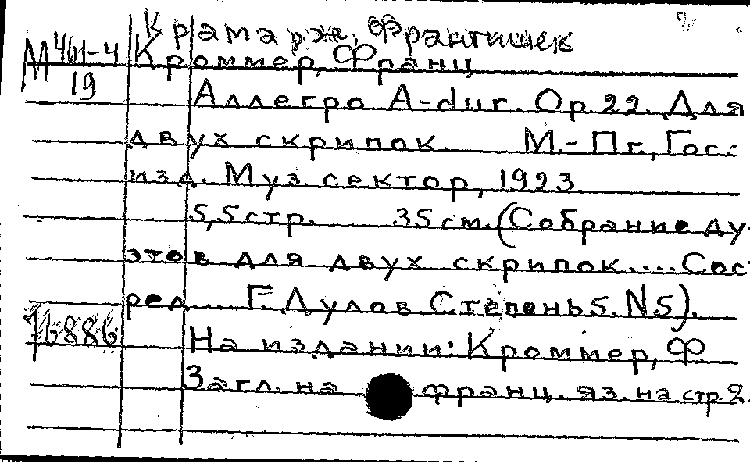 Крамарже, Франтишек
М 461-4
19
Кроммер, Франц
Аллегро A-dur. Op 22. Для
двух скрипок М.-Пг, Гос.
изд. Муз сектор, 1923
5,5 стр. 35 см. (Собрание ду-
этов для двух скрипок.... Сос
ред.... Г. Дулов Степень 5. N5).
На издании: Кроммер, Ф
Загл. на франц. яз. на стр 2.